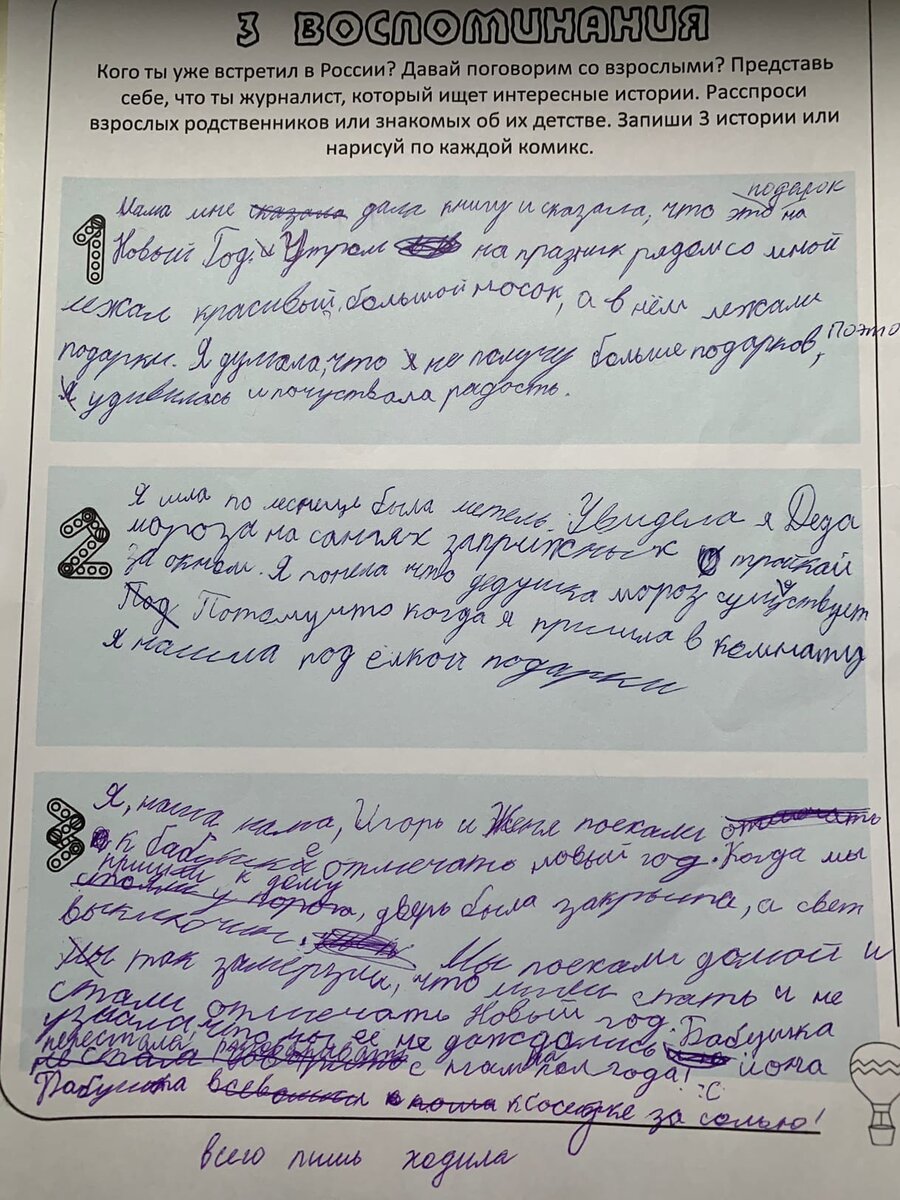 3 ВОСПОМИНАНИЯ
Кого ты уже встретил в России? Давай поговорим со взрослыми? Представь
себе, что ты журналист, который ищет интересные истории. Расспроси
взрослых родственников или знакомых об их детстве. Запиши 3 истории или
нарисуй по каждой комикс.
подарок
1
Мама мне сказала дала книгу и сказала, что это на
Новый Год. Утром на празник рядом со мной
лежал красивый, большой носок, а в нём лежали
подарки. Я думала, что я не получу больше подарков, Поэто
я удивилась и почуствала радость.
2
Я шла по леснице была метель. Увидела я Деда
мороза на саньях заприжныих тройкой
за окном. Я понела что дедушка мороз существует
Под Потамучто когда я пришла в комнату
я нашла под ёлкой подарки
3
Я, наша мама, Игорь и Женя поехали отмечать
к бабушке отмечать новый год. Когда мы
пришли к дому
стояли у порога, дверь была закрыта, а свет
выключин. Мы поехали домой и
мы так замерзли, что спать и не
стали отмечать Новый год. Бабушка
узнала, что мы её не дождались
перестала с мам пол года! йона
Бабушка к соседке за солью!
всего лишь ходила